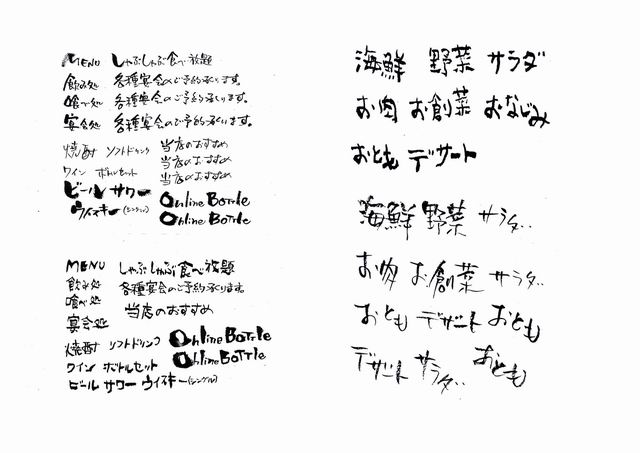 MENU しゃぶしゃぶ食べ放題
飲み処 各種宴会のご予約承ります。
喰べ処 各種宴会のご予約承ります。
宴会処 各種宴会のご予約承ります。
焼酎 ソフトドリンク 当店のおすすめ
当店のおすすめ
ワイン ボトルセット 当店のおすすめ
ビール サワー
Online BoTTle
ウイスキー(シングル) Online BoTTle
MENU しゃぶしゃぶ食べ放題
飲み処 各種宴会のご予約承ります。
喰べ処 当店のおすすめ
宴会処
焼酎 ソフトドリンク Online BoTTle
ワイン ボトルセット Online BoTTle
ビール サワー ウイスキー(シングル)
海鮮 野菜 サラダ
お肉 お創菜 おなじみ
おとも デザート
海鮮 野菜 サラダ
お肉 お創菜 サラダ
おとも デザート おとも
デザート サラダ おとも